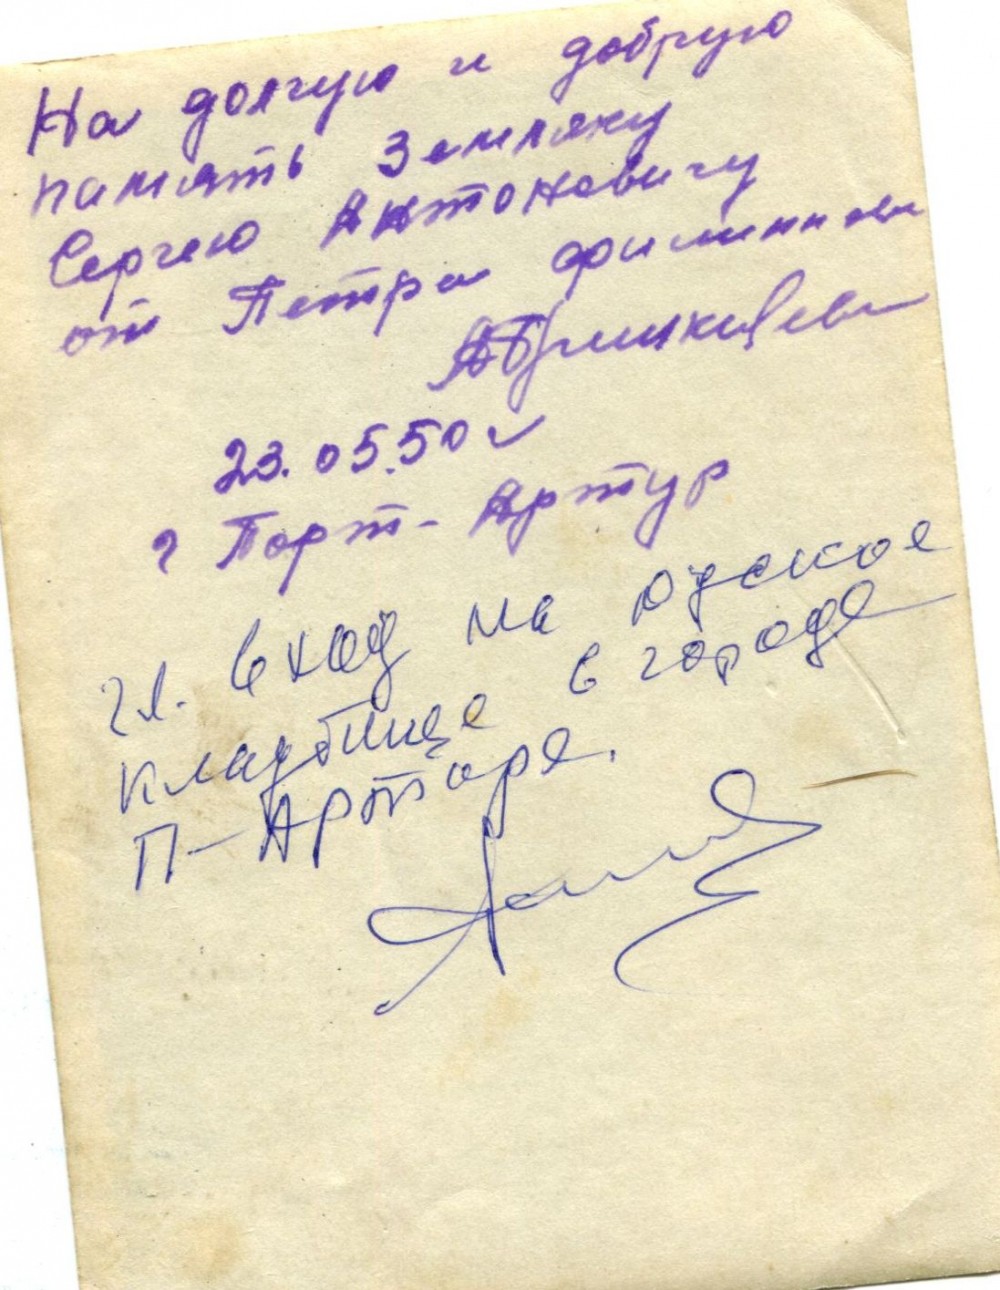 На долгую и добрую
память Земляку
Сергею Антоновичу
от Петра
23.05.50г
г Порт-Артур
гл. вход на руское
кладбище в городе
П-Арторе.